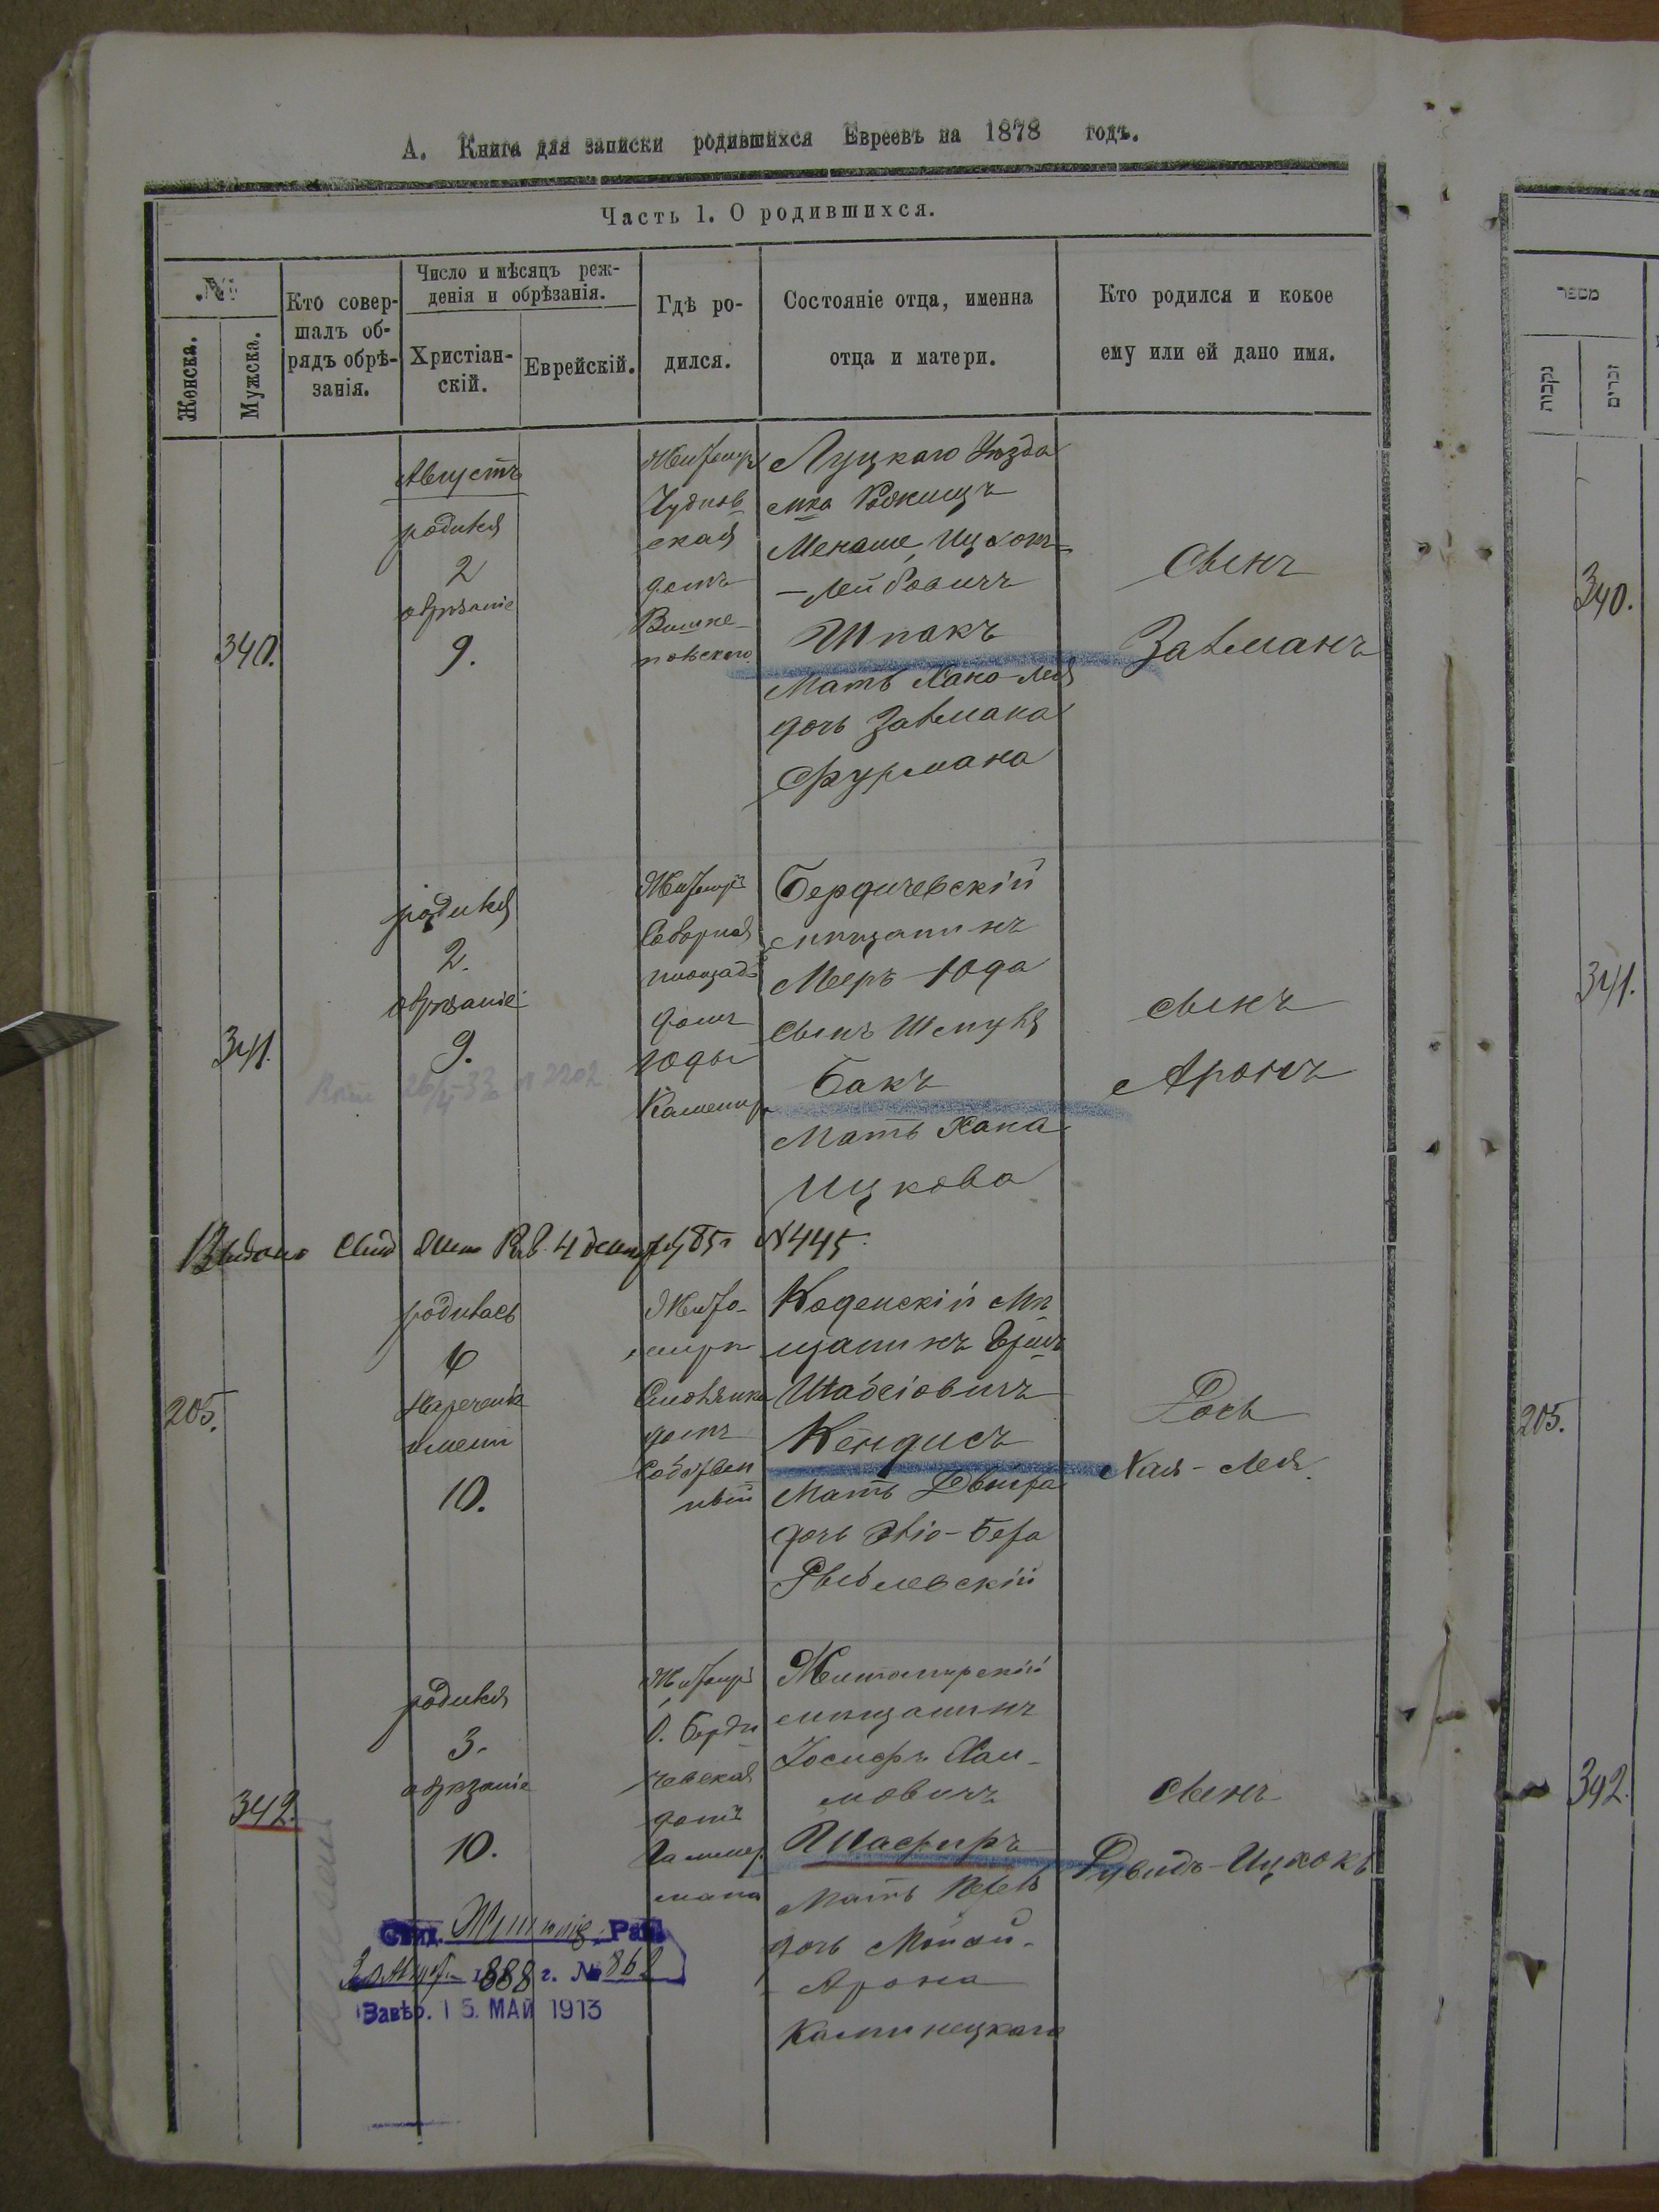 А. Книга для записки родившихся Евреевъ на 1878 годъ.
Часть 1. О родившихся.
№
Женска.
Мужска.
Кто совер-
шалъ об-
рядъ обрѣ-
занія.
Число и мѣсяцъ реж-
денія и обрѣзанія.
Христіан-
скій.
Еврейскій.
Гдѣ ро-
дился.
Состояніе отца, именна
отца и матери.
Кто родился и кокое
ему или ей дано имя.
340.
Августъ
родился
2
обрѣзаніе
9.
Житомиръ
Чуднов-
ская
домъ
Вишне-
повскаго
Луцкаго Уѣзда
мка Рожищъ
Менаше Ицхокъ-
-Лейбовичъ
Шпакъ
Мать Хано-Лея
дочь Завмана
Фурмана
Сынъ
Завманъ
341.
родился
2.
обрѣзаніе
9.
Житомиръ
Соборная
площадь
домъ
Юды
Бердичевскій
мѣщанинъ
Мееръ-Юда
сынъ Шмуля
Бакъ
Мать Хана
Ицкова
сынъ
Аронъ
Выдано Свид 85г №445
205.
родилась
6
Нареченіе
имени
10.
Жито-
миръ
домъ
собствен
ный
Коденскій мѣ
щанинъ
Шабсіовичъ
Кендисъ
Мать Двойра
дочь Эліо-Бера
Рыблевскій
Дочь
Хая-Лея.
342.
родился
3.
обрѣзаніе
10.
Житомиръ
Б. Берди
чевская
домъ
Гаммер
мана
Житомирскій
мѣщанинъ
Іосифъ Хаи-
мовичъ
Шафиръ
Мать Перель
дочь
Арона
Каминецкаго
сынъ
Рувинъ-Ицхокъ
Свид. Рав
1888 г. № 862
Завѣр. 15. МАЙ 1913
מספר
נקבות
זכרים
340.
341.
205.
342.